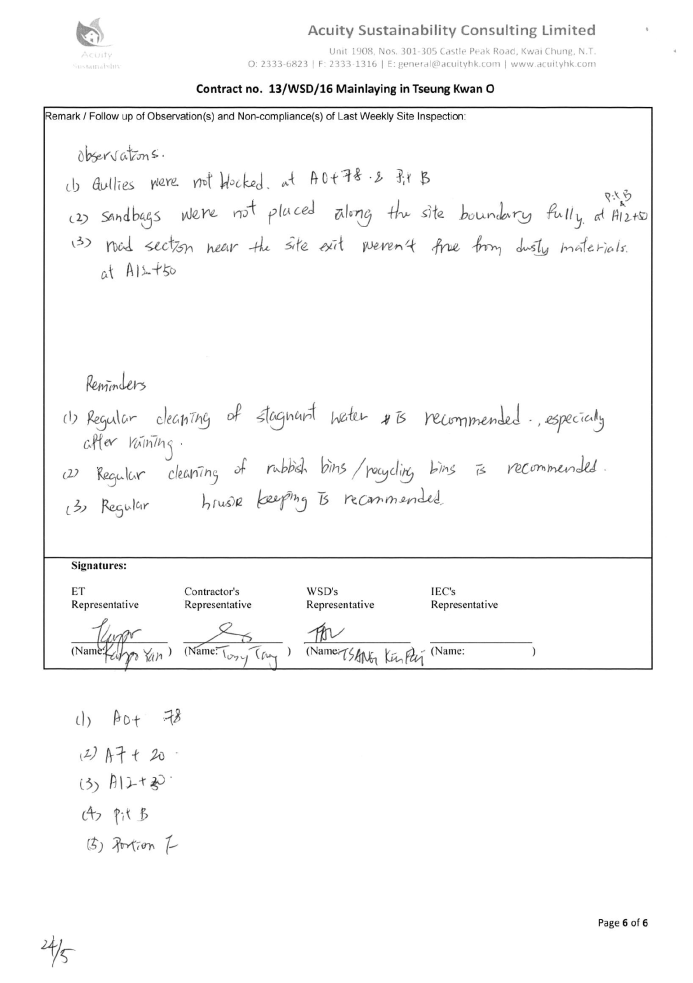 Acuity Sustainability Consulting Limited
Acuity
Sustainability
Unit 1908, Nos. 301-305 Castle Peak Road, Kwai Chung, N.T.
O: 2333-6823 | F: 2333-1316 | E: general@acuityhk.com | www.acuityhk.com
Contract no. 13/WSD/16 Mainlaying in Tseung Kwan O
Remark / Follow up of Observation(s) and Non-compliance(s) of Last Weekly Site Inspection:
Observations.
(1) Gullies were not blocked. at A0+78 & Pit B
Pit B
(2) Sandbags were not placed along the site boundary fully. at A12+50
(3) road section near the site exit weren't free from dusty materials.
at A12+50
Reminders
(1) Regular cleaning of stagnant water is recommended., especially
after raining.
(2) Regular cleaning of rubbish bins / recycling bins is recommended.
(3) Regular house keeping is recommended.
Signatures:
ET Contractor's WSD's IEC's
Representative Representative Representative Representative
(Name: Yan ) (Name: Tony ) (Name: TSANG Kin Fai (Name: )
(1) A0+ 78
(2) A7 + 20
(3) A12+50
(4) Pit B
(5) Portion
Page 6 of 6
24/5